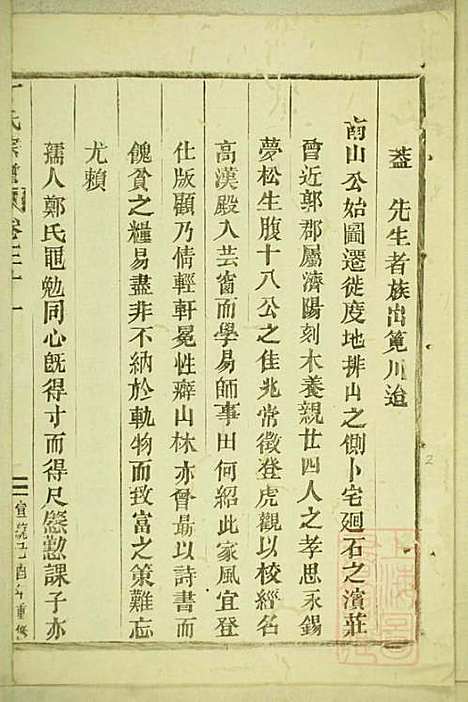 益　先生者族出筧川迨
南山公始圖遷徙度地排山之側卜宅廻石之濱莊
曾近郭郡屬濟陽刻木養親廿四人之孝思永錫
夢松生腹十八公之佳兆常徵登虎觀以校經名
高漢殿入芸窗而學易師事田何紹此家風宜登
仕版顧乃情輕軒冕性癖山林亦曾勗以詩書而
愧貧之糧易盡非不納於軌物而致富之策難忘
尤賴
孺人鄭氏黽勉同心旣得寸而得尺慇懃課子亦
丁氏宗譜　卷二十一
宣統己酉年重修